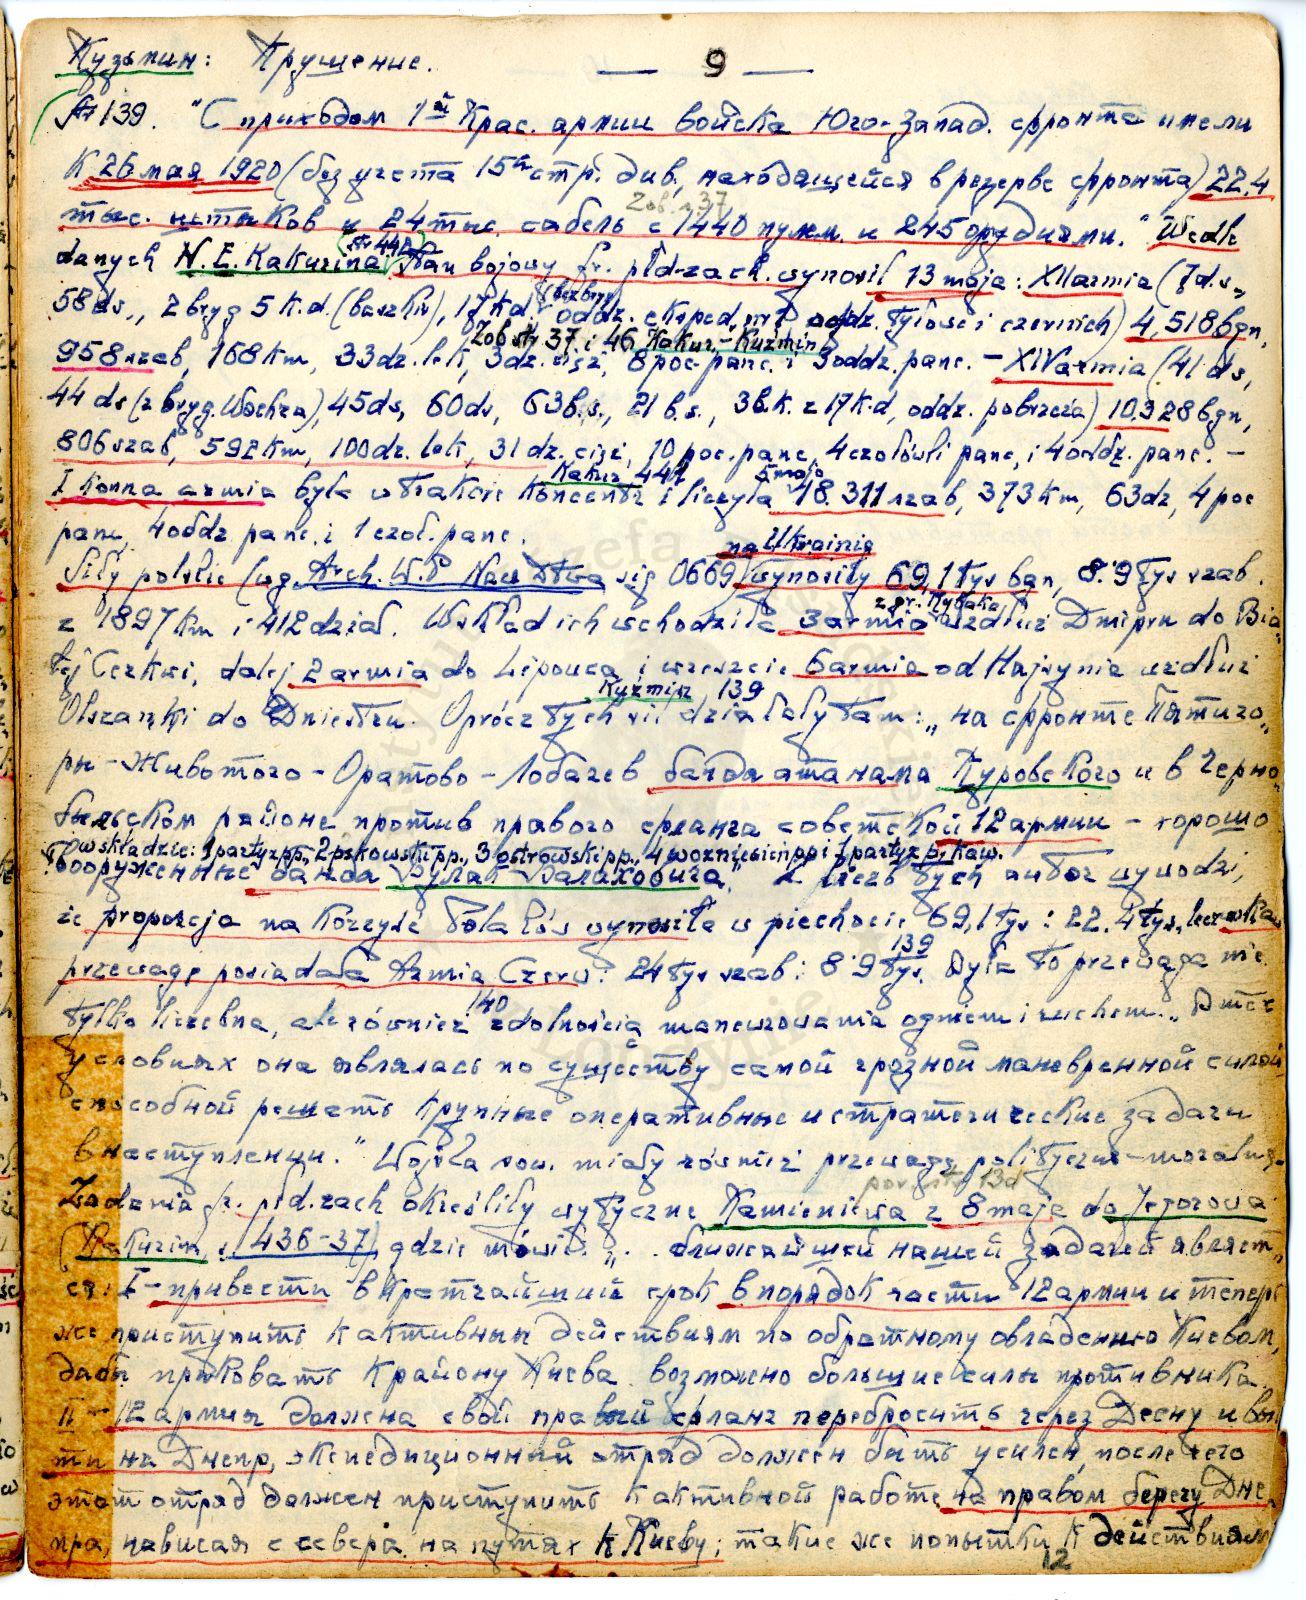 Кузьмин: Крушение.
— 9 —
Str 139. "С приходом 1ой Крас. армии войска Юго-Запад. фронта имели
К 26 мая 1920 (без учета 15ой стр. див., находящейся в резерве фронта) 22,4
Zob. s. 37
тыс. штыков и 24 тыс. сабель с 1440 пулем. и 245 орудиями." Wedle
danych N. E. Kakurina (str 440) stan bojowy fr. płd-zach. wynosił 13 maja: XII armia (7 d.s.,
58 ds., 2 bryg 5 k.d. (baszkir), 17 kd. (bez bryg) oddz. eksped. oddz. tyłowe i czernich) 4,518 bgn,
Zob str 37 i 46 Kakur.-Kuzmin
958 szab, 168 km, 33 dz. lek, 3 dz. cięż, 8 poc. panc. i 3 oddz. panc. – XIV armia (41 ds,
44 ds (z bryg. Wochra), 45 ds, 60 ds, 63 b.s., 21 b.s., 3 b.k. z 17 k.d, oddz. pobrzeża) 10.328 bgn,
806 szab, 592 km, 100 dz. lek, 31 dz. cięż, 10 poc. panc, 4 czołówki panc, i 4 oddz. panc. –
Kakur 441 5 maja
I konna armia była w trakcie koncentr i liczyła 18.311 szab, 373 km, 63 dz, 4 poc
panc, 4 oddz panc. i 1 czoł. panc.
na Ukrainie
Siły polskie (wg. Arch. W.P Nacz Dtwa sig 0669) wynosiły 69,1 tys bgn, 8.9 tys szab.
z gr. Rybaka
z 1897 km i 412 dział. W skład ich wchodziła 3 armia wzdłuż Dniepru do Bia-
łej Cerkwi, dalej 2 armia do Lipowca i wreszcie 6 armia od Hajsynia wzdłuż
Kuzmin 139
Olszanki do Dniestru. Oprócz tych sił działały tam: „на фронте Пятиго-
ры - Животого - Оратово - Лобачев банда атамана Куровского и в Черно-
быльском районе против правого фланга советской 12 армии – хорошо
(w składzie: 1 party z pp., 2 pskowski pp., 3 ostrowski pp., 4 wozniesien pp i 1 party z p. kaw.
вооруженные банда Булак Балаховича." Z liczb tych autor wywodzi,
że proporcja na korzyść Polaków wynosiła w piechocie 69,1 tys : 22.4 tys, lecz
139
przewagę posiadała Armia Czerw: 24 tys szab : 8.9 tys. Była to przewaga nie
140
tylko liczebna, ale również zdolnością manewrowania ogniem i ruchem. „В тех
условиях она являлась по существу самой грозной маневренной силой
способной решать крупные оперативные и стратегические задачи
в наступлении." Wojska sow. miały również przewagę polityczno-moralną.
por. str 138
Zadania fr. płd. zach określiły wytyczne Kamieniewa z 8 maja do Jegorowa
(Kakurin, s. 436-37) gdzie mówi: „... ближайшей нашей задачей являет-
ся: I – привести в кратчайший срок в порядок части 12 армии и теперь
же приступить к активным действиям по обратному овладению Киевом,
дабы приковать к району Киева возможно большие силы противника.
II – 12 армия должна свой правый фланг перебросить через Десну и вы-
ти на Днепр, экспедиционный отряд должен быть усилен, после чего
этот отряд должен приступить к активной работе на правом берегу Дне-
пра, нависая с севера на путях к Киеву; такие же попытки к действиям
12